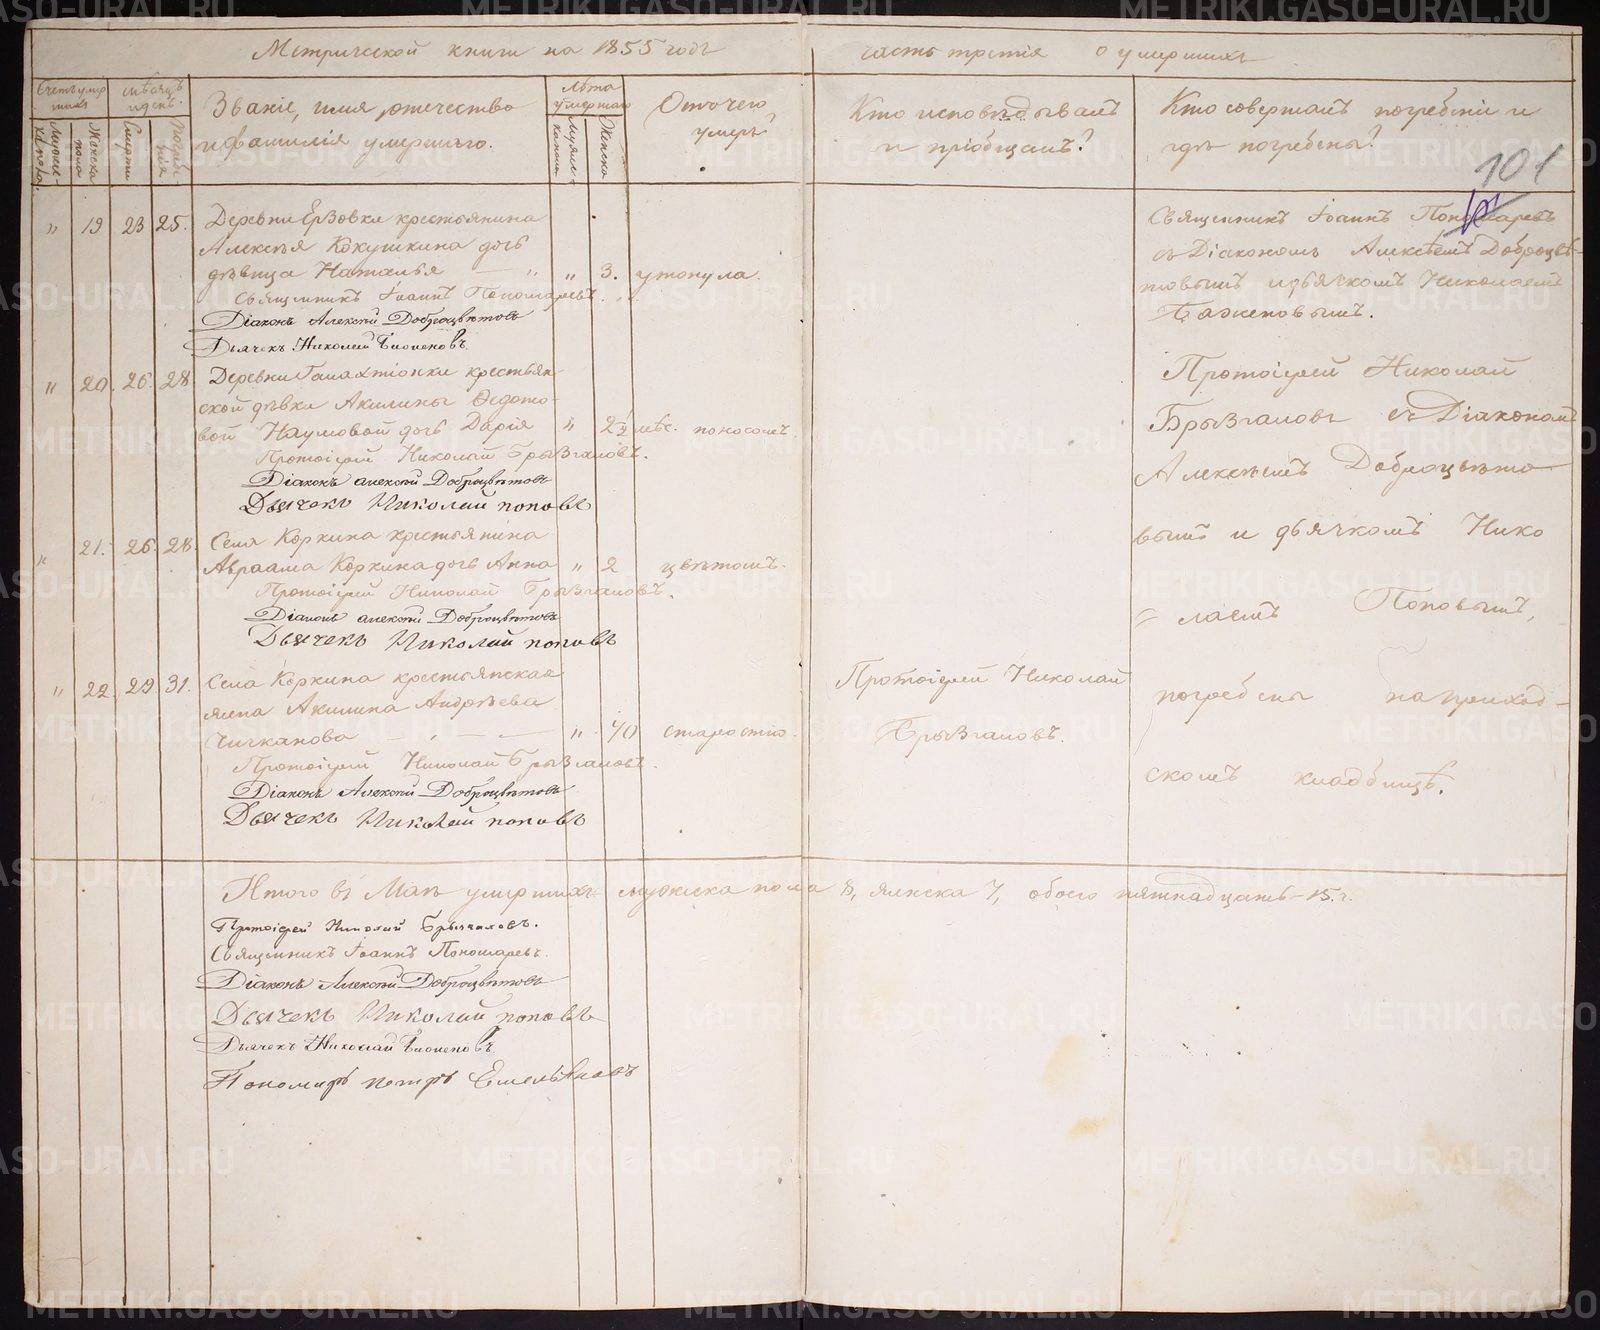 Метрической книги на 1855 годъ
часть третія о умершихъ
Счетъ умершихъ
Мѣсяцъ и день.
Званіе, имя, отечество
и фамилія умершаго.
Лѣта умершаго
Отъ чего
умеръ?
Кто исповѣдывалъ
и пріобщалъ?
Кто совершалъ погребеніе и
гдѣ погребены?
Женска пола
Смерти
Женска
101
" 19 23 25. Деревни Ерзовки крестьянина
Алексѣя Кокушкина дочь
дѣвица Наталья — " " 3. утонула.
Священникъ Іоаннъ Пономаревъ.
Діаконъ Алексѣй Доброцвѣтовъ
Дьячекъ Николай
Священникъ Іоаннъ Пономаревъ
съ Діакономъ Алексѣемъ Доброцвѣ-
товымъ и дьячкомъ Николаемъ
" 20. 26. 28. Деревни крестьян-
ской дѣвки Акилины Ѳедото-
вой Наумовой дочь Дарія " 2½ мѣс. поносомъ.
Протоіерей Николай Брызгаловъ.
Діаконъ Алексѣй Доброцвѣтовъ
Дьячекъ Николай поповъ
" 21. 26. 28. Села Коркина крестьянина
Авраама Коркина дочь Анна " 2 цвѣтомъ.
Протоіерей Николай Брызгаловъ.
Діаконъ Алексѣй Доброцвѣтовъ
Дьячекъ Николай поповъ
" 22. 29 31. Села Коркина крестьянская
жена Акилина Андрѣева
Чичканова — " 70 старостію.
Протоіерей Николай Брызгаловъ.
Діаконъ Алексѣй Доброцвѣтовъ
Дьячекъ Николай поповъ
Протоіерей Николай
Брызгаловъ.
Протоіерей Николай
Брызгаловъ съ Діакономъ
Алексѣемъ Доброцвѣто-
вымъ и дьячкомъ Нико
= лаемъ Поповымъ,
погребены на приход-
скомъ кладбищѣ.
Итого въ Маѣ умершихъ мужеска пола 8, женска 7, обоего пятнадцать — 15.
Протоіерей Николай Брызгаловъ.
Священникъ Іоаннъ Пономаревъ.
Діаконъ Алексѣй Доброцвѣтовъ
Дьячекъ Николай поповъ
Дьячекъ Николай
Пономарь петръ Емельяновъ
METRIKI.GASO-URAL.RU